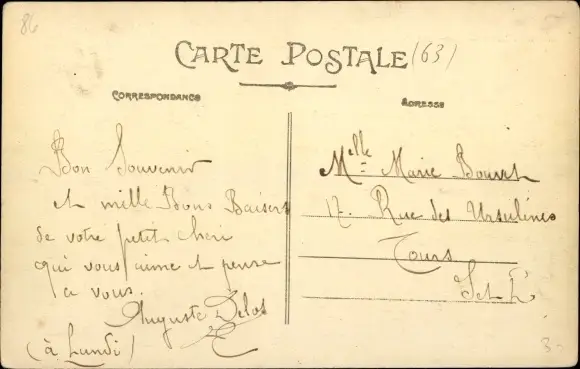 86
CARTE POSTALE (63)
CORRESPONDANCE
ADRESSE
Bon Souvenir
et mille Bons Baisers
de votre petit cheri
qui vous aime et pense
a vous.
Auguste Delos
(à Lundi)
Melle Marie Bouvet
17. Rue des Ursulines
Tours
I et L
3